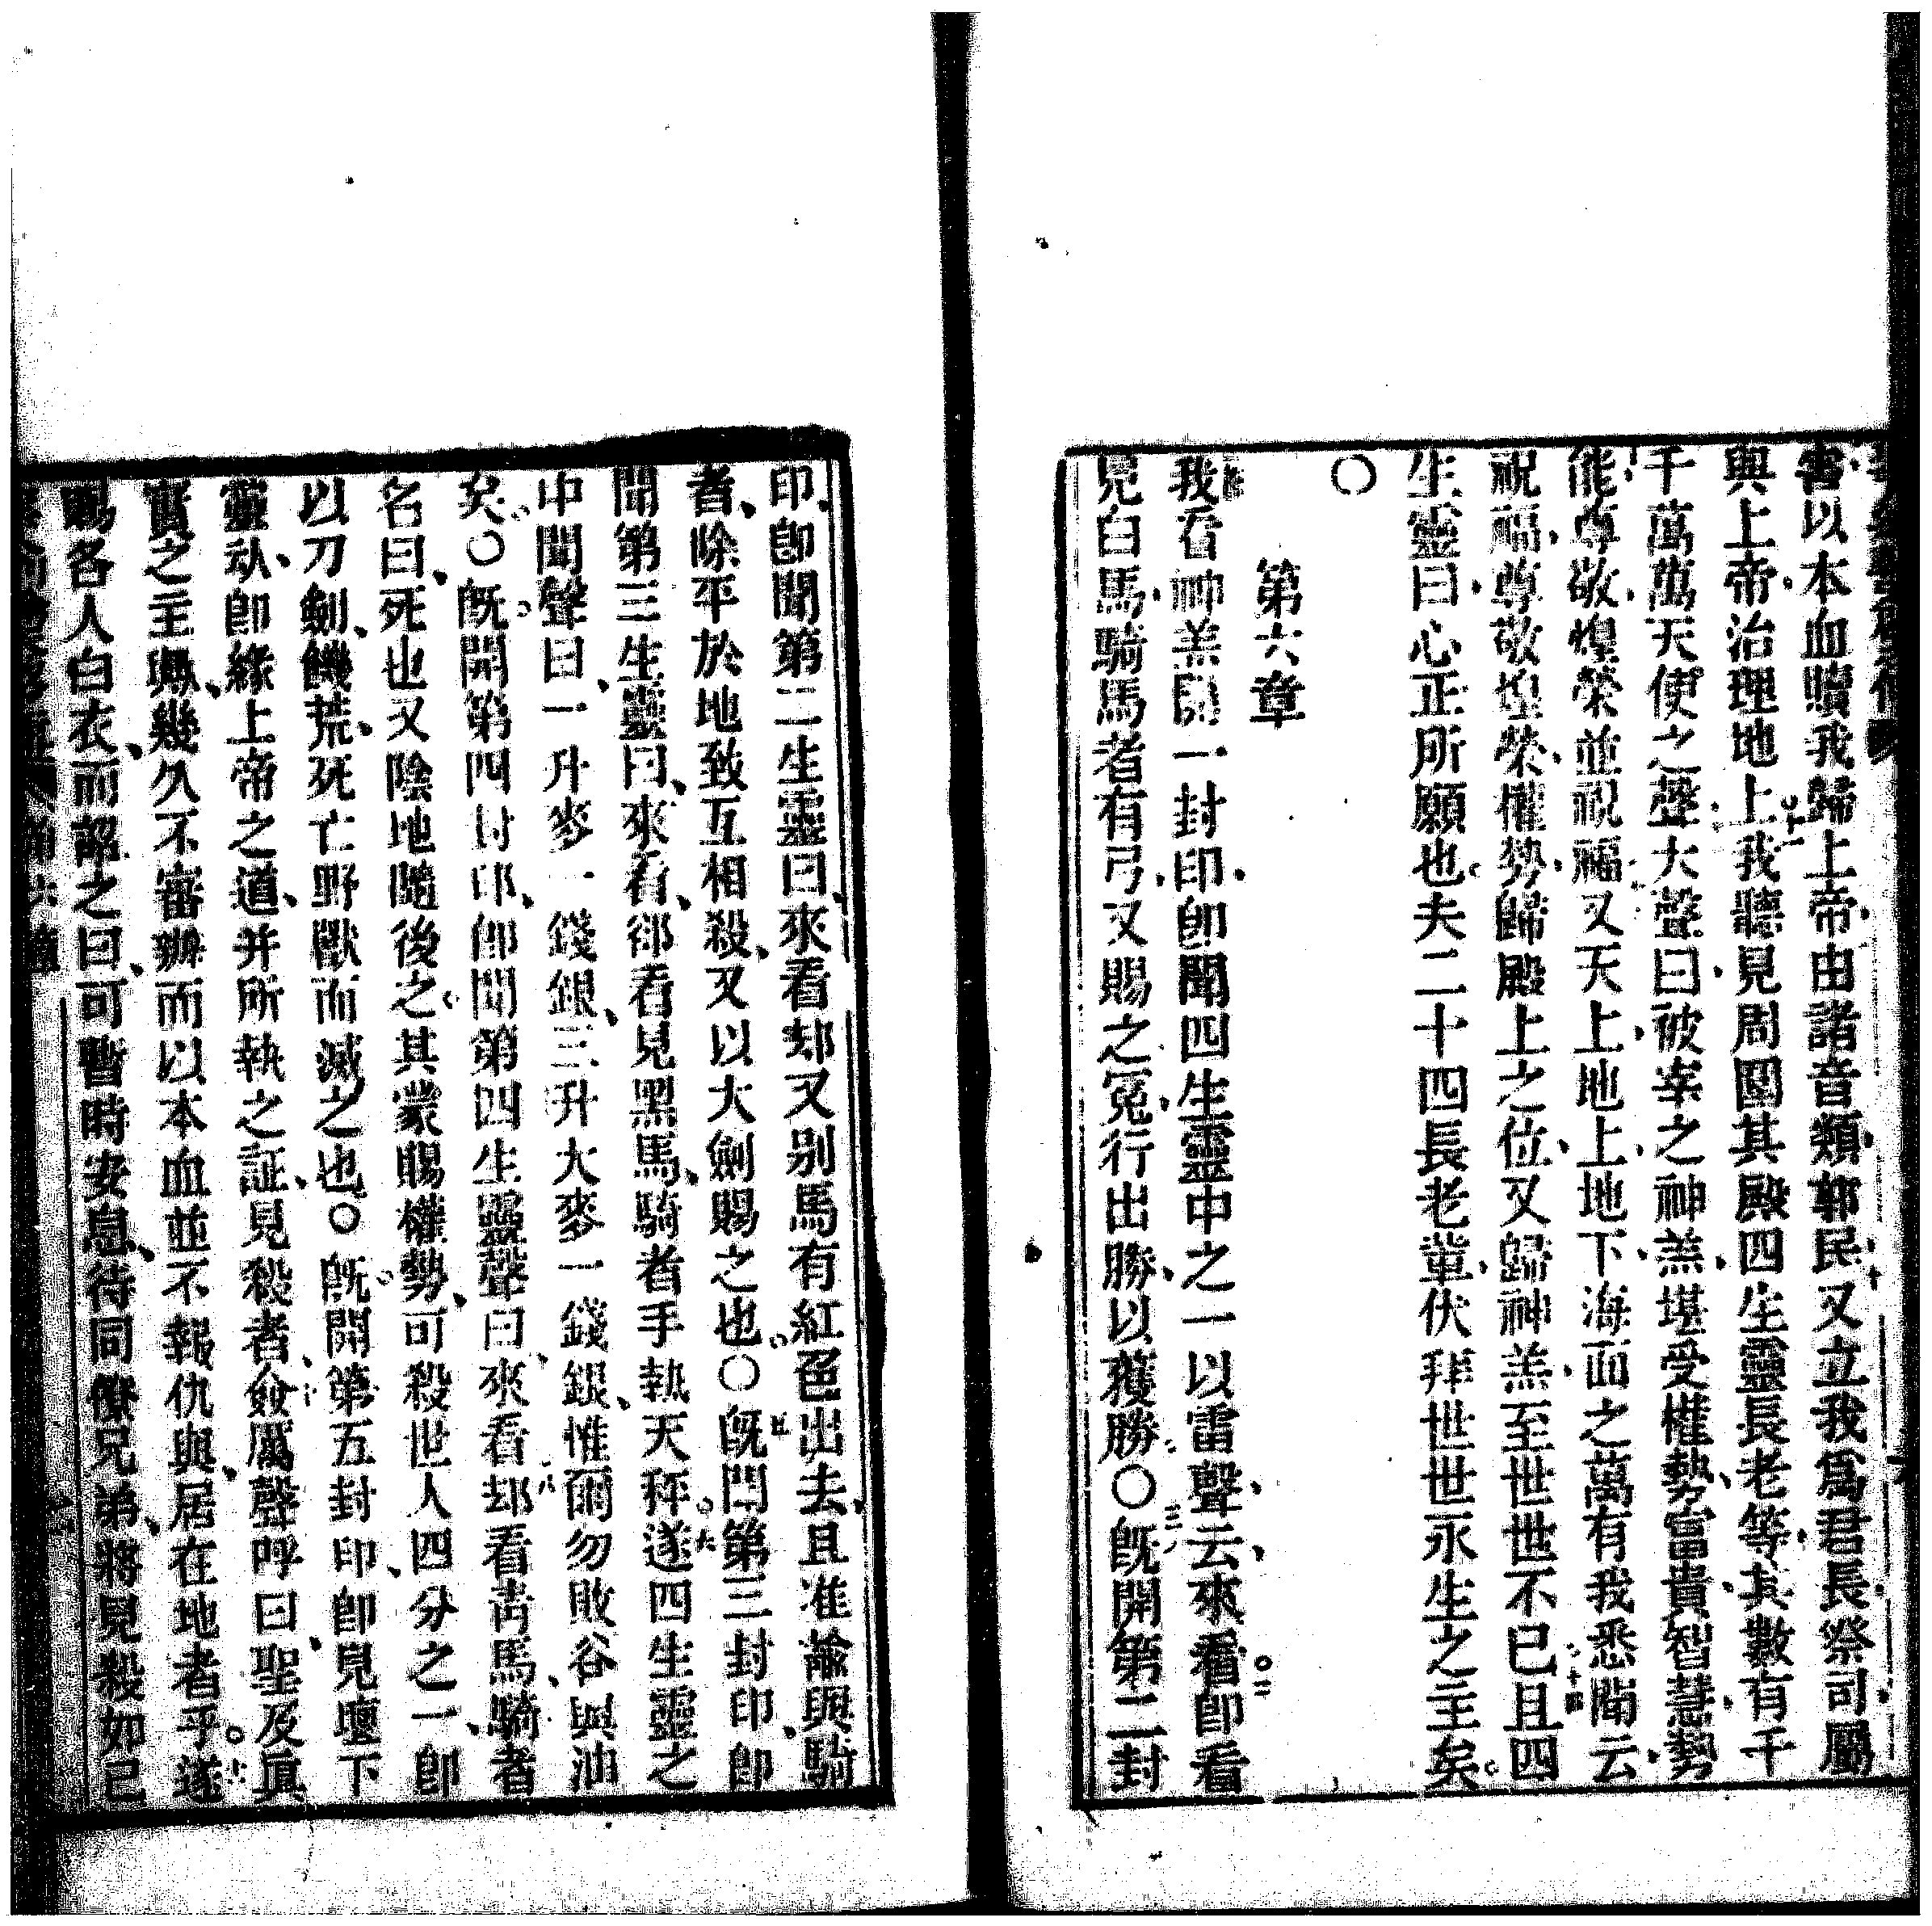 書以本血贖我歸上帝由諸音類郭民又立我爲君長祭司屬
與上帝治理地上我聽見周圍其殿四生靈長老等其數有千
千萬萬天使之聲大聲曰被宰之神羔堪受權勢富貴智慧勢
能尊敬煌榮並祝福又天上地上地下海面之萬有我悉聞云
祝福尊敬煌榮權勢歸殿上之位又歸神羔至世世不已且四
生靈曰心正所願也夫二十四長老輩伏拜世世永生之主矣
〇
第六章
我看神羔開一封印卽聞四生靈中之一以雷聲云來看卽看
見白馬騎馬者有弓又賜之冕行出勝以獲勝〇旣開第二封
印卽聞第二生靈曰來看却又別馬有紅色出去且准諭與騎
者除平於地致互相殺又以大劍賜之也〇旣開第三封印卽
聞第三生靈曰來看郤看見黑馬騎者手執天秤遂四生靈之
中聞聲曰一升麥一錢銀三升大麥一錢銀惟爾勿敗谷與油
矣〇旣開第四封印卽聞第四生靈聲曰來看却看靑馬騎者
名曰死也又陰地隨後之其蒙賜權勢可殺世人四分之一卽
以刀劍饑荒死亡野獸而滅之也〇旣開第五封印卽見壇下
靈㱃卽緣上帝之道并所執之証見殺者僉厲聲呼曰聖及眞
實之主歟幾久不審辦而以本血並不報仇與居在地者乎遂
賜各人白衣而詔之曰可暫時安息待同僚兄弟將見殺如已